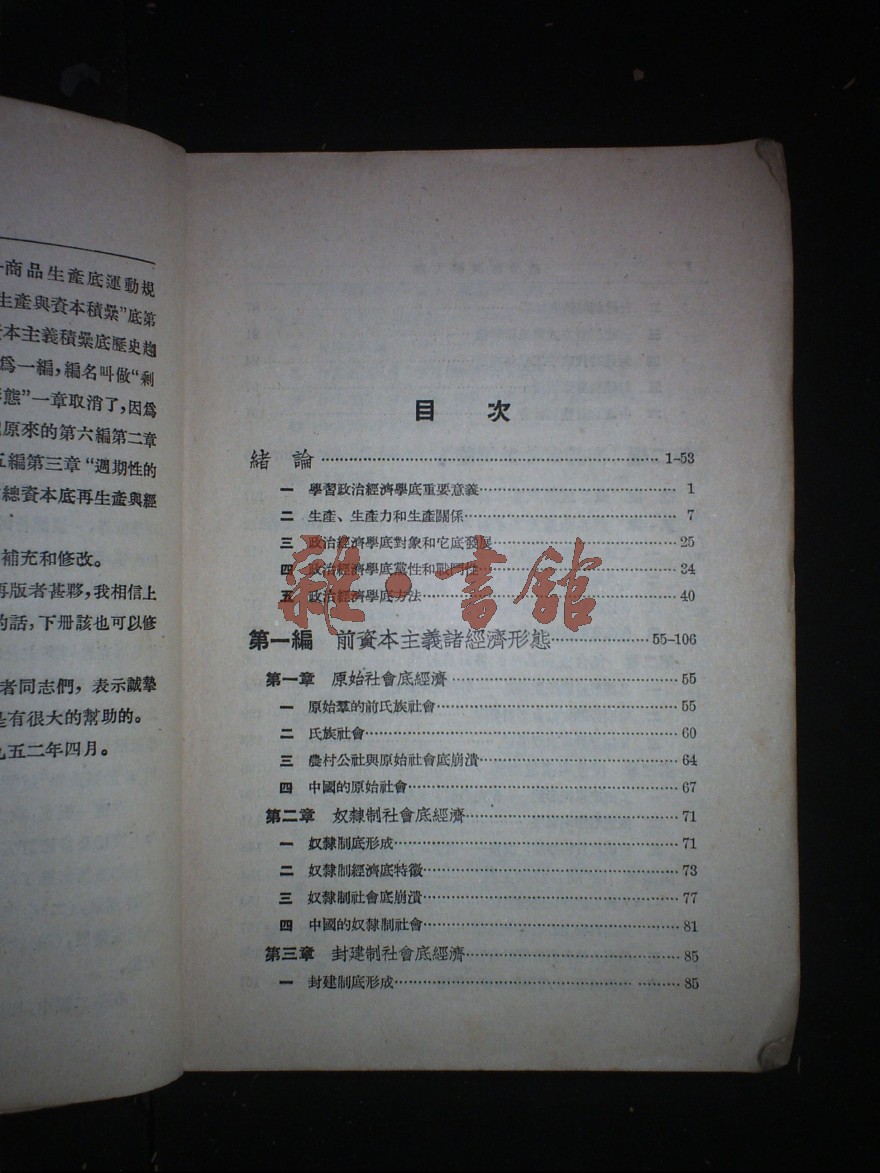 商品生產底運動規
生產與資本積纍”底第
資本主義積纍底歷史趨
爲一編，編名叫做“剩
態”一章取消了，因爲
原來的第六編第二章
五編第三章“週期性的
總資本底再生產與經
補充和修改。
再版者甚夥，我相信上
的話，下册該也可以修
者同志們，表示誠摯
是有很大的幫助的。
九五二年四月。
目 次
緒 論 1-53
一 學習政治經濟學底重要意義 1
二 生產、生產力和生產關係 7
三 政治經濟學底對象和它底發展 25
四 政治經濟學底黨性和戰鬥性 34
五 政治經濟學底方法 40
第一編 前資本主義諸經濟形態 55-106
第一章 原始社會底經濟 55
一 原始羣的前氏族社會 55
二 氏族社會 60
三 農村公社與原始社會底崩潰 64
四 中國的原始社會 67
第二章 奴隸制社會底經濟 71
一 奴隸制底形成 71
二 奴隸制經濟底特徵 73
三 奴隸制社會底崩潰 77
四 中國的奴隸制社會 81
第三章 封建制社會底經濟 85
一 封建制底形成 85
雜·書館